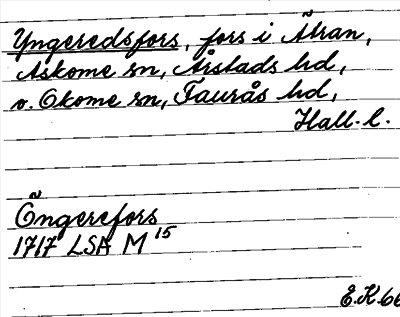 Yngeredsfors, fors i Ätran,
Askome sn, Årstads hd,
o. Okome sn, Faurås hd,
Hall. l.
Öngerefors
1717 LSA M 15
E.K. 66